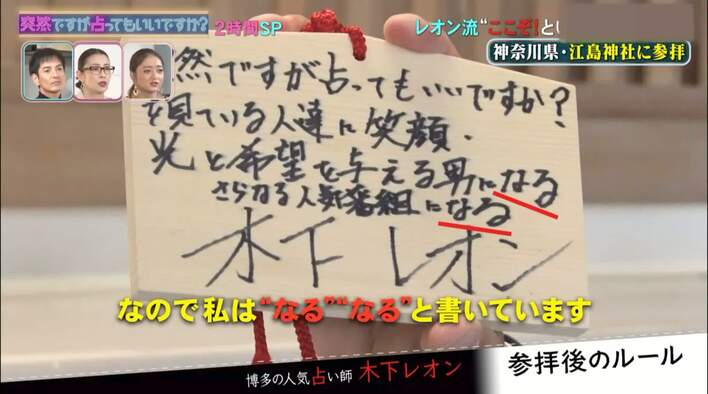 突然ですが占ってもいいですか?
2時間SP
レオン流"ここぞ!と
神奈川県・江島神社に参拝
然ですが占ってもいいですか?
観ている人達に笑顔・
光と希望を与える男になる
さらなる人気番組になる
木下 レオン
なので私は"なる""なる"と書いています
博多の人気占い師 木下レオン
参拝後のルール